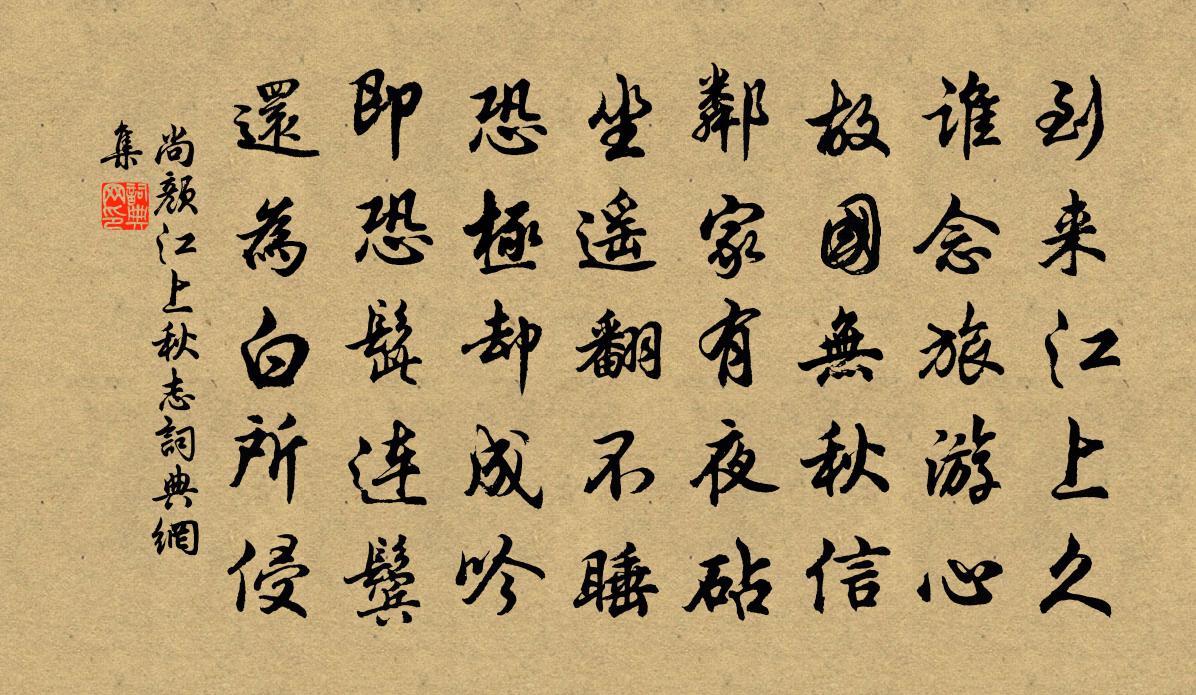 到来江上久
谁念旅游心
故國無秋信
鄰家有夜砧
坐遥翻不睡
恐極却成吟
即恐髭连鬓
還為白所侵
尚颜江上秋志詞典網
集
詞典
网印